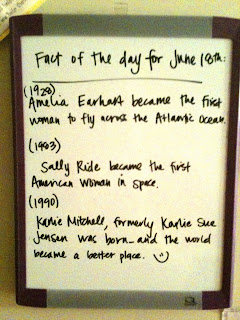 Fact of the day for June 18th:
(1928)
Amelia Earhart became the first
woman to fly across the Atlantic Ocean.
(1983)
Sally Ride became the first
American Woman in Space.
(1990)
Karlie Mitchell, formerly Karlie Sue
Jensen was born_ and the world
became a better place.